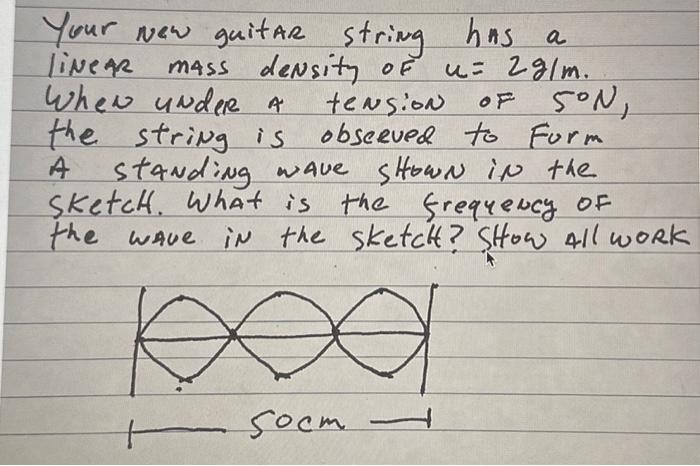 Your new guitar string has a
linear mass density of u = 2g/m.
When under a tension of 50N,
the string is observed to form
a standing wave shown in the
sketch. What is the frequency of
the wave in the sketch? Show all work
50cm